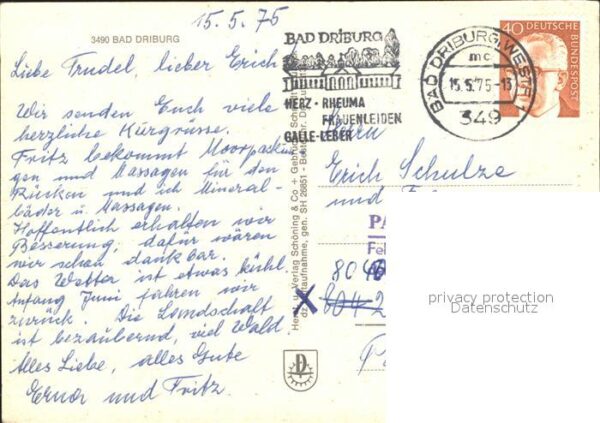 15.5.75
3490 BAD DRIBURG
Liebe Trudel, lieber Erich
Wir senden Euch viele
herzliche Kurgrüsse.
Fritz bekommt Moorpackun
gen und Massagen für den
Rücken und ich Mineral-
bäder u. Massagen.
Hoffentlich erhalten wir
Besserung, dafür wären
wir schon dankbar.
Das Wetter ist etwas kühl,
Anfang Juni fahren wir
zurück. Die Landschaft
ist bezaubernd, viel Wald
Alles Liebe, alles Gute
Erna und Fritz.
BAD DRIBURG
HERZ · RHEUMA
FRAUENLEIDEN
GALLE-LEBER
BAD DRIBURG, WESTF 1
mc
15.5.75-13
349
40 DEUTSCHE
BUNDESPOST
Erich Schulze
und
PA
Fel
80
8042
privacy protection
Datenschutz